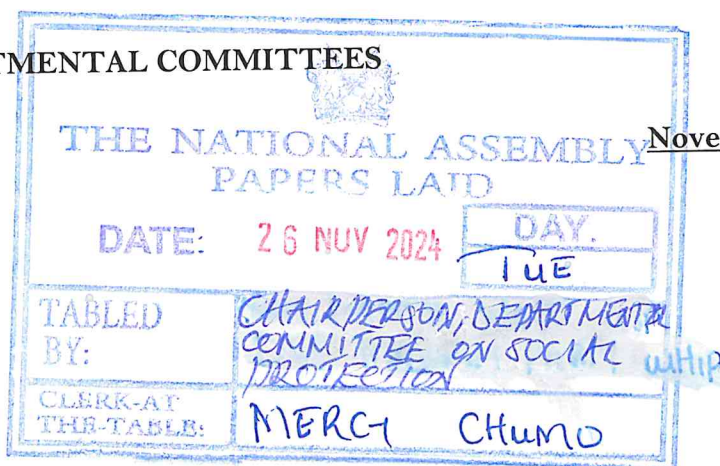 TMENTAL COMMITTEES
THE NATIONAL ASSEMBLY
Nove
PAPERS LAID
DATE: 26 NOV 2024
DAY.
TUE
TABLED BY:
CHAIRPERSON, DEPARTMENTAL
COMMITTEE ON SOCIAL
PROTECTION
WHIP
CLERK-AT
THE-TABLE:
MERCY CHUMO